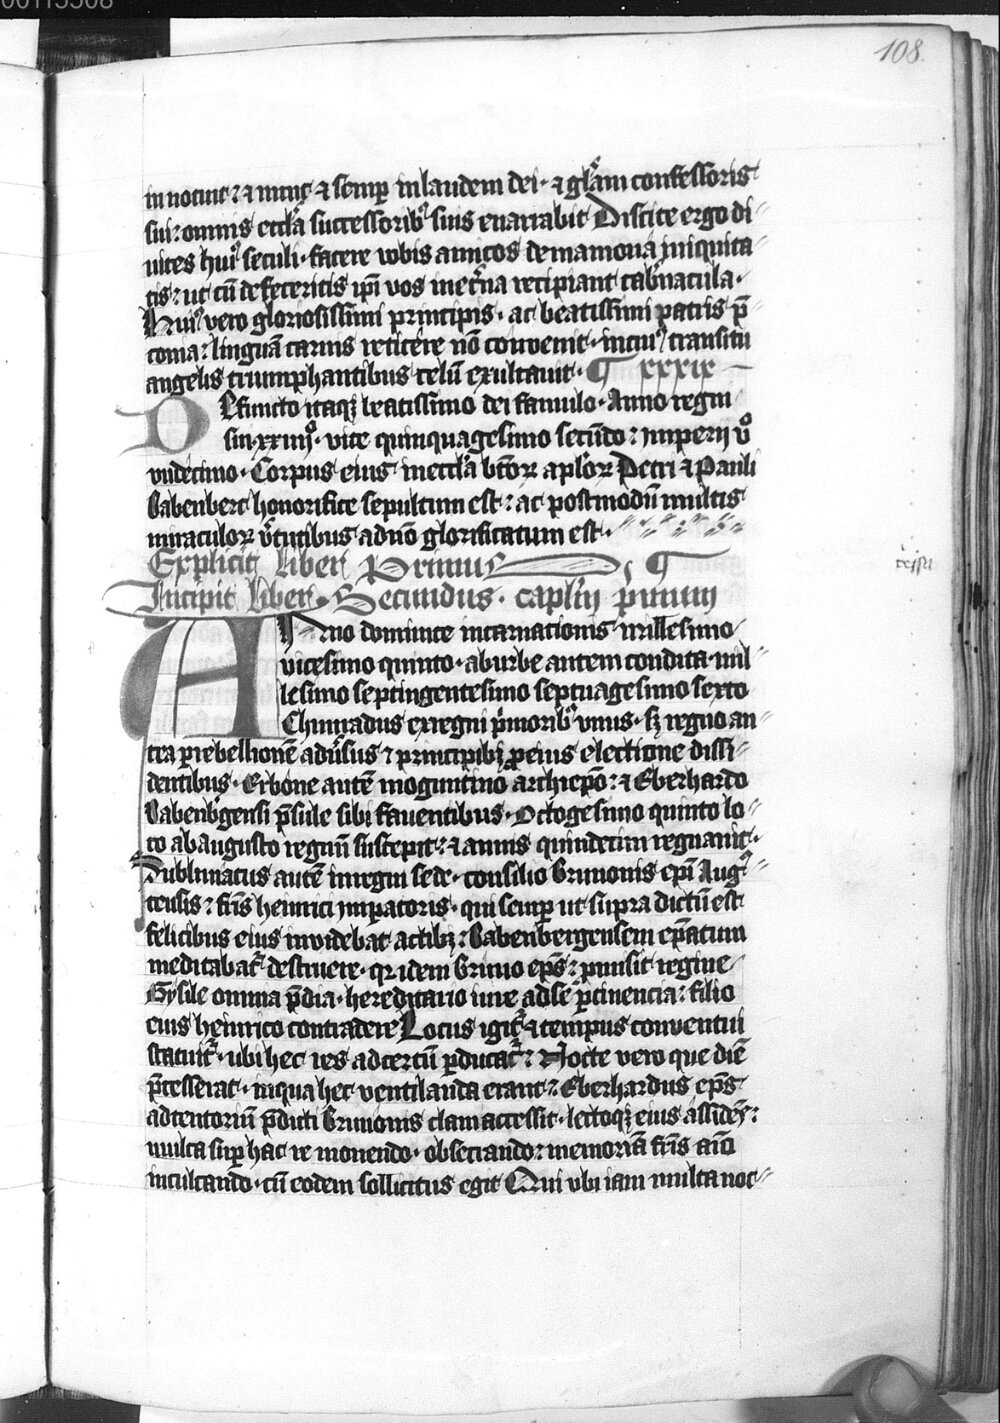 00115308
108.
innotuit: ⁊ a nunc ⁊ semꝑ in laudem dei· ⁊ gl̃am confessoris
sui: omnis eccl̃a successoribꝰ suis enarrabit Discite ergo di〃
uites huiꝰ seculi· facere vobis amicos de mamona iniquita〃
tis: ut cũ defeceritis ip̃i vos in et̾na recipiant tab̾nacula·
Huiꝰ vero gloriosissimi principis· ac beatissimi patris p̃
conia: linguã carnis reticere nõ conuenit· in cuiꝰ transitu
angelis triumphantibus celũ exultauit· ¶ xxxix
DEfuncto itaqꝫ beatissimo dei famulo· Anno regni
sui·xxiiijº· vite quinquagesimo secũdo: imperij v̊
vndecimo· Corpus eius in eccl̃a bt̃oꝝ apl̃oꝝ Petri ⁊ Pauli
Babenberc honorifice sepultum est: ac postmodũ multis
miraculoꝝ v̾tutibus a dño glorificatum est·
Explicit liber Primus ¶
Incipit liber Secundus· capl̃m p̾mum
ANno dominice incarnationis millesimo
vicesimo quinto· ab urbe autem condita· mil〃
lesimo septingentesimo septuagesimo sexto
Chunradus ex regni p̾moribꝰ vnus· sꝫ regno an〃
tea ꝑ rebellionẽ adũsus ⁊ principibꝫ ꝓ eius electione dissi〃
dentibus· Erbone autẽ moguntino archiep̃o: ⁊ Eberhardo
Babenb̾gensi p̃sule sibi fauentibus· Octogesimo quinto lo〃
co ab augusto regnũ suscepit: ⁊ annis quindecim regnauit·
Sublimatus autẽ in regni sede· consilio Brunonis ep̃i Augꝰ〃
tensis: fr̃is heinrici imꝑatoris· qui semꝑ ut supra dictũ est
felicibus eius inuidebat actibꝫ: Babenbergensem ep̃atum
meditabat᷑ destruere· qꝛ idem Bruno ep̃s: ꝓmisit regine
Gysile omnia p̃dia· hereditario iure ad se ꝑtinencia: filio
eius heinrico contradere Locus igit᷑ ⁊ tempus conuentui
statuit᷑· ubi hec res ad certũ ꝑducat᷑: Nocte vero que diẽ
p̃cesserat· in qua hec ventilanda erant: Eberhardus ep̃s
ad tentoriũ p̃dicti Brunonis clam accessit· lectoqꝫ eius assidẽs:
multa suꝑ hac re monendo· obsecrando: memoriã fr̃is
inculcando· cũ eodem sollicitus egit Qui ubi iam multa noc〃